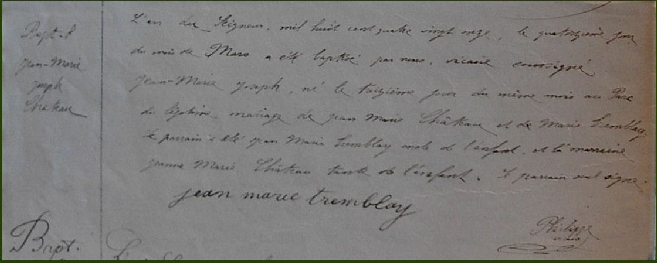 Bapt. 8
Jean-Marie
Joseph
Château
L'an du Seigneur, mil huit cent quatre vingt onze, le quatorzième jour
du mois de Mars a été baptisé par nous, vicaire soussigné
Jean-Marie Joseph, né le treizième jour du même mois au
du légitime mariage de Jean Marie Château et de Marie Tremblay
le parrain a été Jean Marie Tremblay oncle de l'enfant, et la marraine
Jeanne Marie Château tante de l'enfant. le parrain seul signe
jean marie tremblay
Philippe
Bapt.